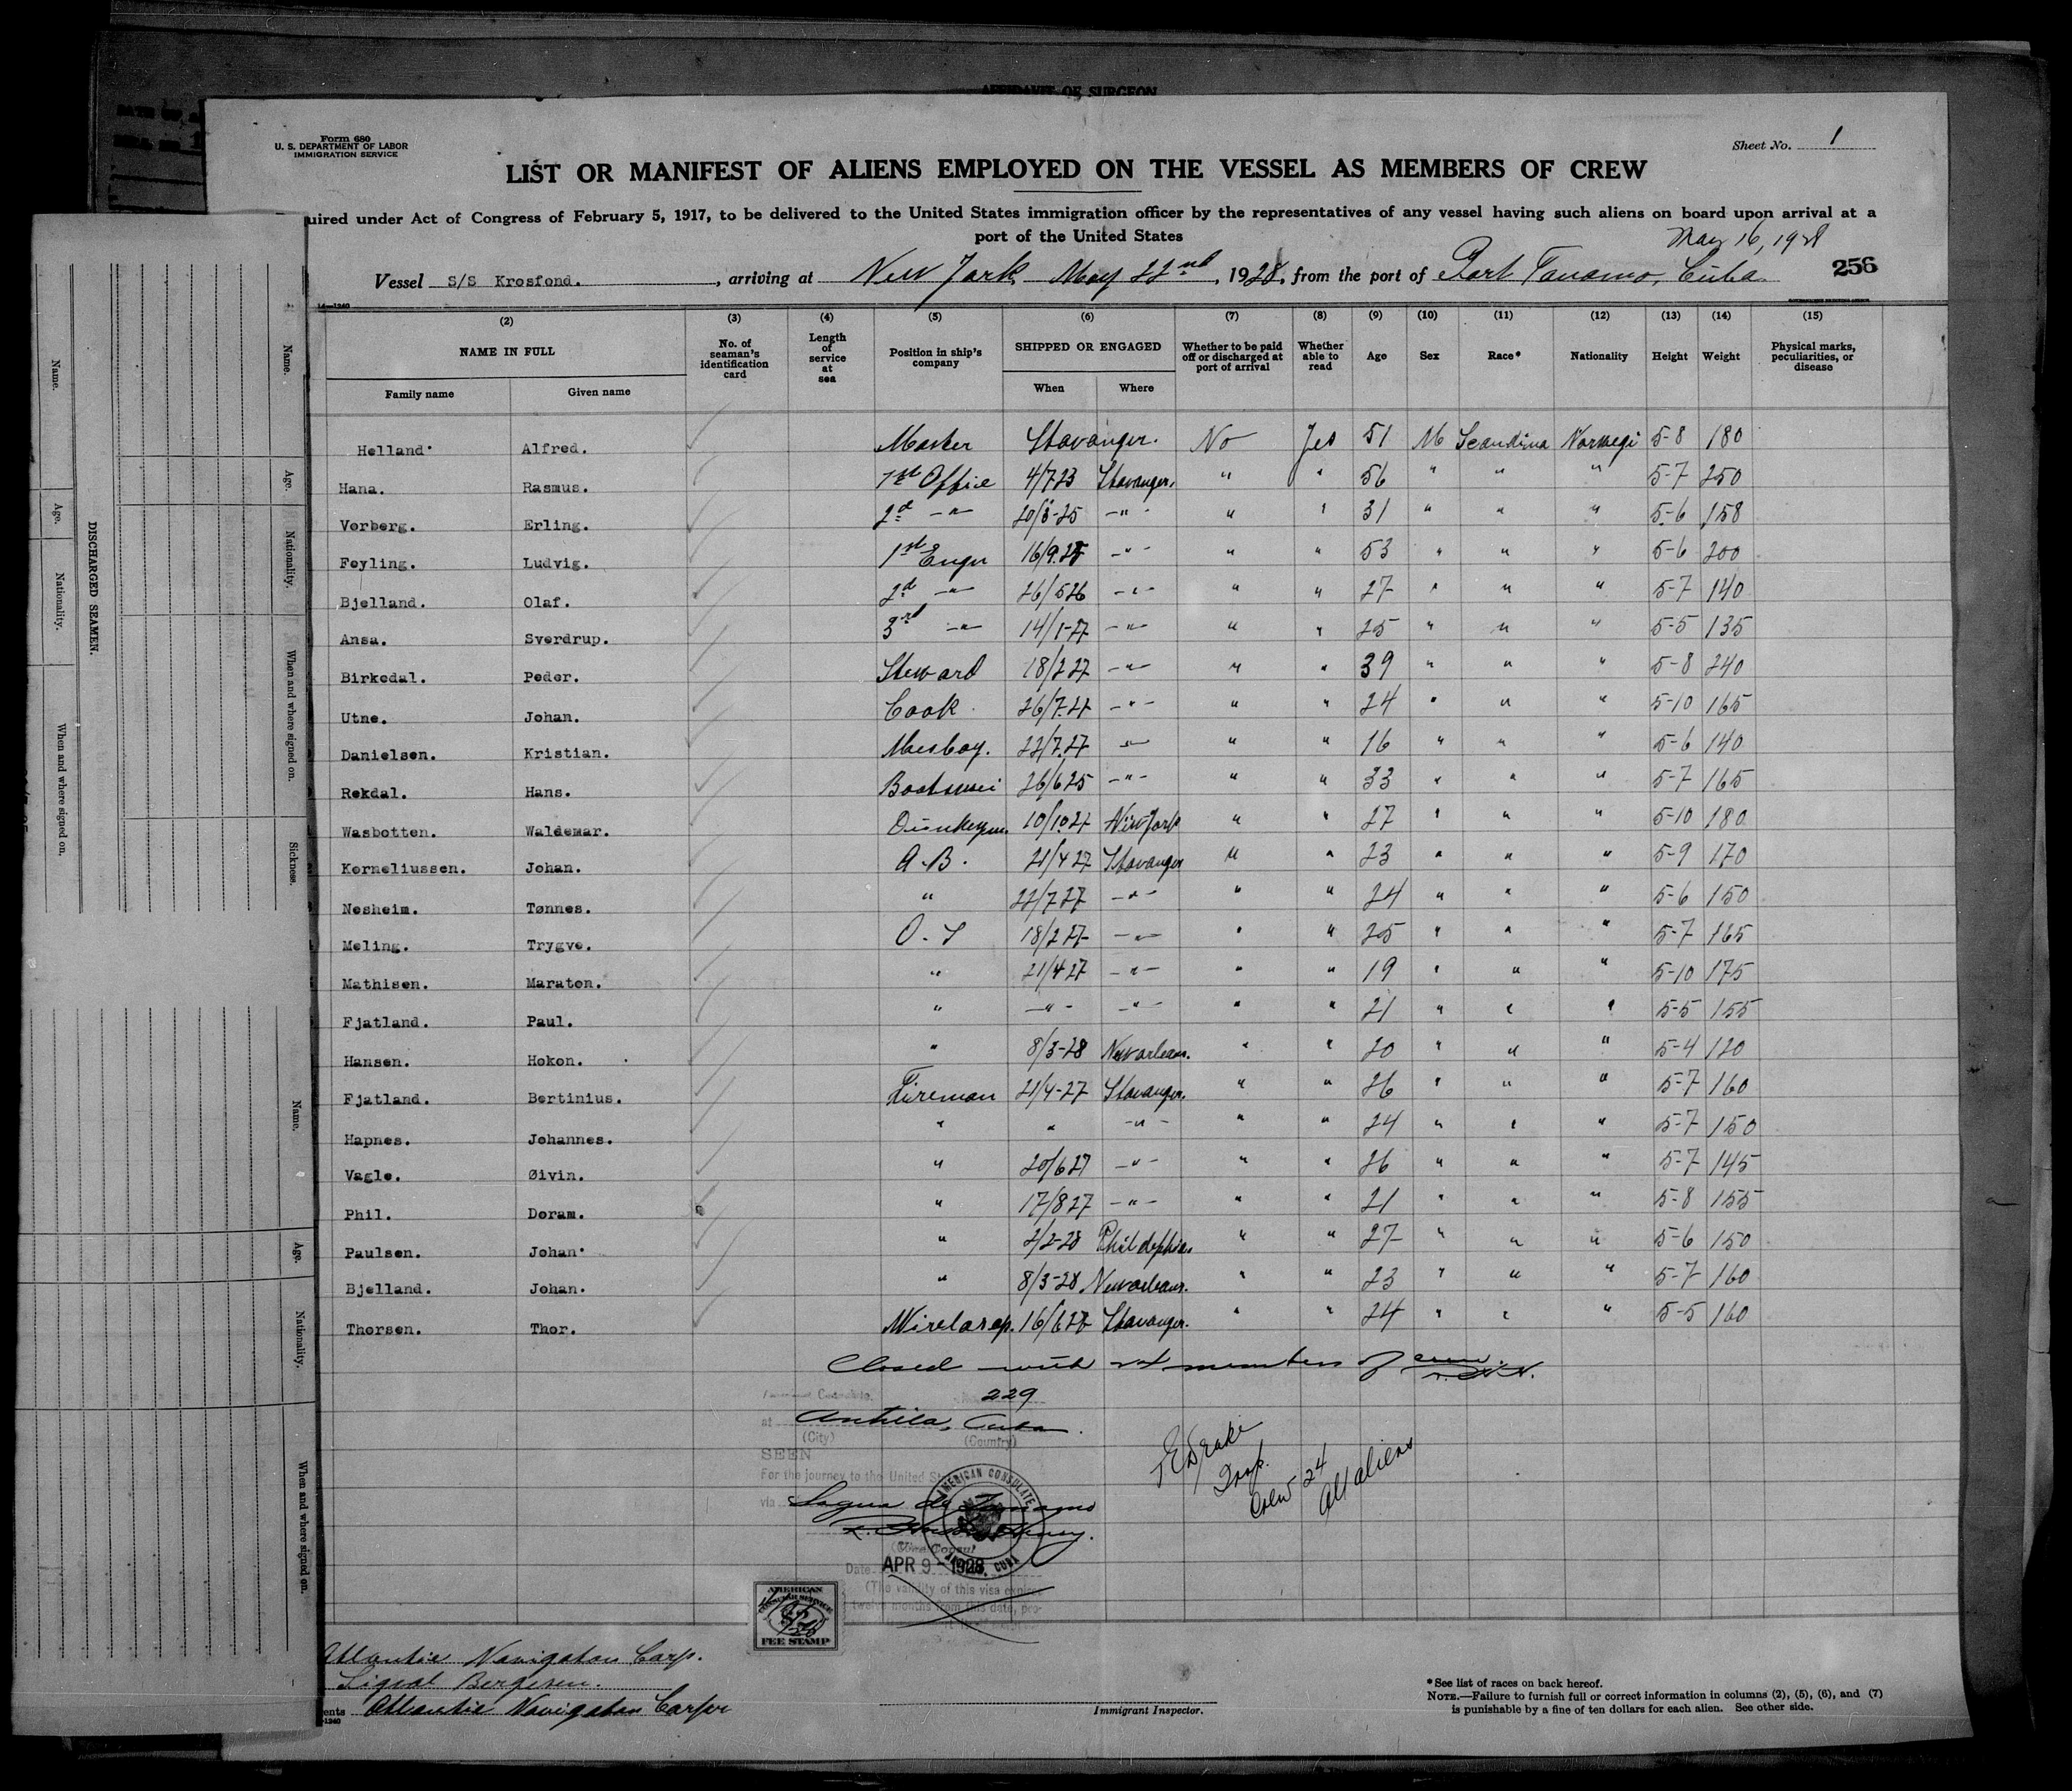 AFFIDAVIT OF SURGEON
Form 680
U. S. DEPARTMENT OF LABOR
IMMIGRATION SERVICE
Sheet No. 1
LIST OR MANIFEST OF ALIENS EMPLOYED ON THE VESSEL AS MEMBERS OF CREW
uired under Act of Congress of February 5, 1917, to be delivered to the United States immigration officer by the representatives of any vessel having such aliens on board upon arrival at a
port of the United States
May 16, 1928
Vessel S/S Krosfond. , arriving at New York May 22nd , 1928, from the port of Port Tanamo, Cuba. 256
(2) (3) (4) (5) (6) (7) (8) (9) (10) (11) (12) (13) (14) (15)
NAME IN FULL No. of seaman's identification card Length of service at sea Position in ship's company SHIPPED OR ENGAGED Whether to be paid off or discharged at port of arrival Whether able to read Age Sex Race* Nationality Height Weight Physical marks, peculiarities, or disease
Family name Given name When Where
Helland. Alfred. Master Stavanger. No Yes 51 M Scandina Norwegi 5-8 180
Hana. Rasmus. 1st Office 4/7 23 Stavanger. " " 56 " " " 5-7 250
Vorberg. Erling. 2d -"- 20/3-25 -"- " " 31 " " " 5-6 158
Feyling. Ludvig. 1st Engr 16/9. -"- " " 53 " " " 5-6 200
Bjelland. Olaf. 2d -"- 26/5 26 -"- " " 27 " " " 5-7 140
Ansa. Sverdrup. 3rd -"- 14/1-27 -"- " " 25 " " " 5-5 135
Birkedal. Peder. Steward 18/2 27 -"- " " 39 " " " 5-8 240
Utne. Johan. Cook 26/7.27 -"- " " 24 " " " 5-10 165
Danielsen. Kristian. Messboy. 22/7.27 -"- " " 16 " " " 5-6 140
Rekdal. Hans. 26/6 25 -"- " " 33 " " " 5-7 165
Wasbotten. Waldemar. Dunkeyman. 10/10.27 New York " " 27 " " " 5-10 180
Korneliussen. Johan. A.B. 21/4 27 Stavanger " " 23 " " " 5-9 170
Nesheim. Tønnes. " 22/7 27 -"- " " 24 " " " 5-6 150
Meling. Trygve. O.S 18/2 27 -"- " " 25 " " " 5-7 165
Mathisen. Maraton. " 21/4 27 -"- " " 19 " " " 5-10 175
Fjatland. Paul. " -"- -"- " " 21 " " " 5-5 155
Hansen. Hokon. " 8/3-28 New orleans. " " 20 " " " 5-4 120
Fjatland. Bertinius. Fireman 21/4-27 Stavanger. " " 26 " " " 5-7 160
Hapnes. Johannes. " " -"- " " 24 " " " 5-7 150
Vagle. Øivin. " 20/6 27 -"- " " 26 " " " 5-7 145
Phil. Doram. " 17/8 27 -"- " " 21 " " " 5-8 155
Paulsen. Johan. " 2/2-28 Phildephia. " " 27 " " " 5-6 150
Bjelland. Johan. " 8/3-28 New orleans. " " 23 " " " 5-7 160
Thorsen. Thor. Wirelasop. Stavanger. " " 24 " " " 5-5 160
Closed with 24 members of crew.
229
at Antilla, Cuba.
(City) (Country)
SEEN
For the journey to the United St
via Sagua de Tanamo
Vice Consul
AMERICAN CONSULATE
CUBA
Date APR 9 - 1928.
(The validity of this visa expires
twelve months from this date, pro-
AMERICAN
CONSULAR SERVICE
FEE STAMP
E Drake
Insp.
Crew 24
All aliens
Atlantic Navigation Corp.
Sigval Bergesen.
ents Atlantic Navigation Corpr
Immigrant Inspector.
*See list of races on back hereof.
NOTE.—Failure to furnish full or correct information in columns (2), (5), (6), and (7)
is punishable by a fine of ten dollars for each alien. See other side.
DISCHARGED SEAMEN.
Name. Age. Nationality. When and where signed on.
Name. Age. Nationality. When and where signed on. Sickness.
Name. Age. Nationality. When and where signed on.